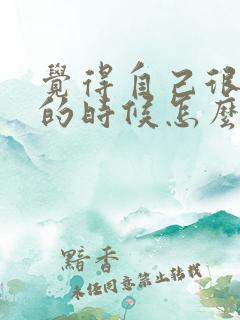 覺得自己很
的時候怎麼
黯香
未经同意禁止转载